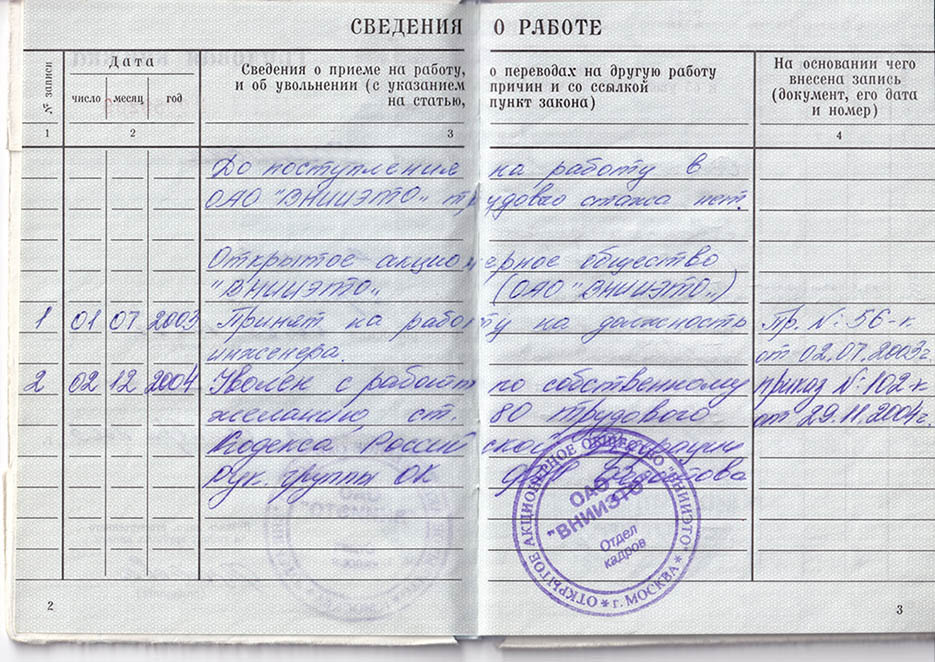 СВЕДЕНИЯ О РАБОТЕ
№ записи
Дата
число месяц год
Сведения о приеме на работу, о переводах на другую работу
и об увольнении (с указанием причин и со ссылкой
на статью, пункт закона)
На основании чего
внесена запись
(документ, его дата
и номер)
1 2 3 4
До поступления на работу в
ОАО "ВНИИЭТО" трудового стажа нет.
Открытое акционерное общество
"ВНИИЭТО" (ОАО "ВНИИЭТО")
1 01 07 2003 Принят на работу на должность Пр. №: 56-к
инженера. от 02.07.2003г.
2 02 12 2004 Уволен с работы по собственному приказ №: 102-к
желанию, ст. 80 трудового от 29.11.2004г.
Кодекса Российской Федерации
Рук. группы ОК
ОТКРЫТОЕ АКЦИОНЕРНОЕ ОБЩЕСТВО "ВНИИЭТО" * г. МОСКВА *
ОАО
"ВНИИЭТО"
Отдел
кадров
2
3